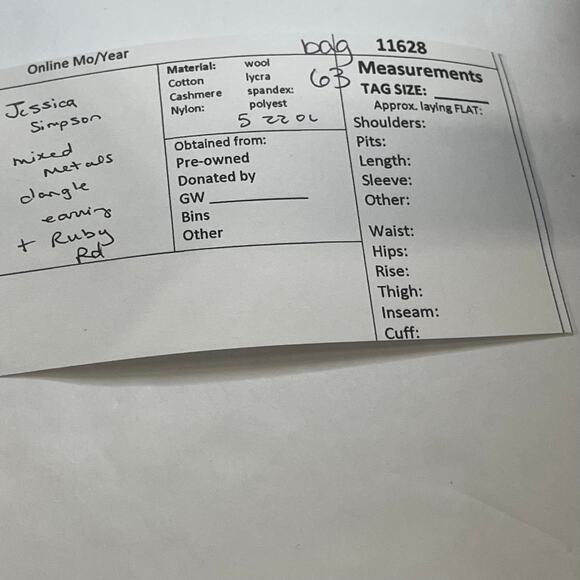 Online Mo/Year
Jessica
Simpson
mixed
metals
dangle
earring
+ Ruby
Rd
Material: wool
Cotton lycra
Cashmere spandex:
Nylon: polyest
5 22 oz
Obtained from:
Pre-owned
Donated by
GW
Bins
Other
bag 11628
63 Measurements
TAG SIZE:
Approx. laying FLAT:
Shoulders:
Pits:
Length:
Sleeve:
Other:
Waist:
Hips:
Rise:
Thigh:
Inseam:
Cuff: